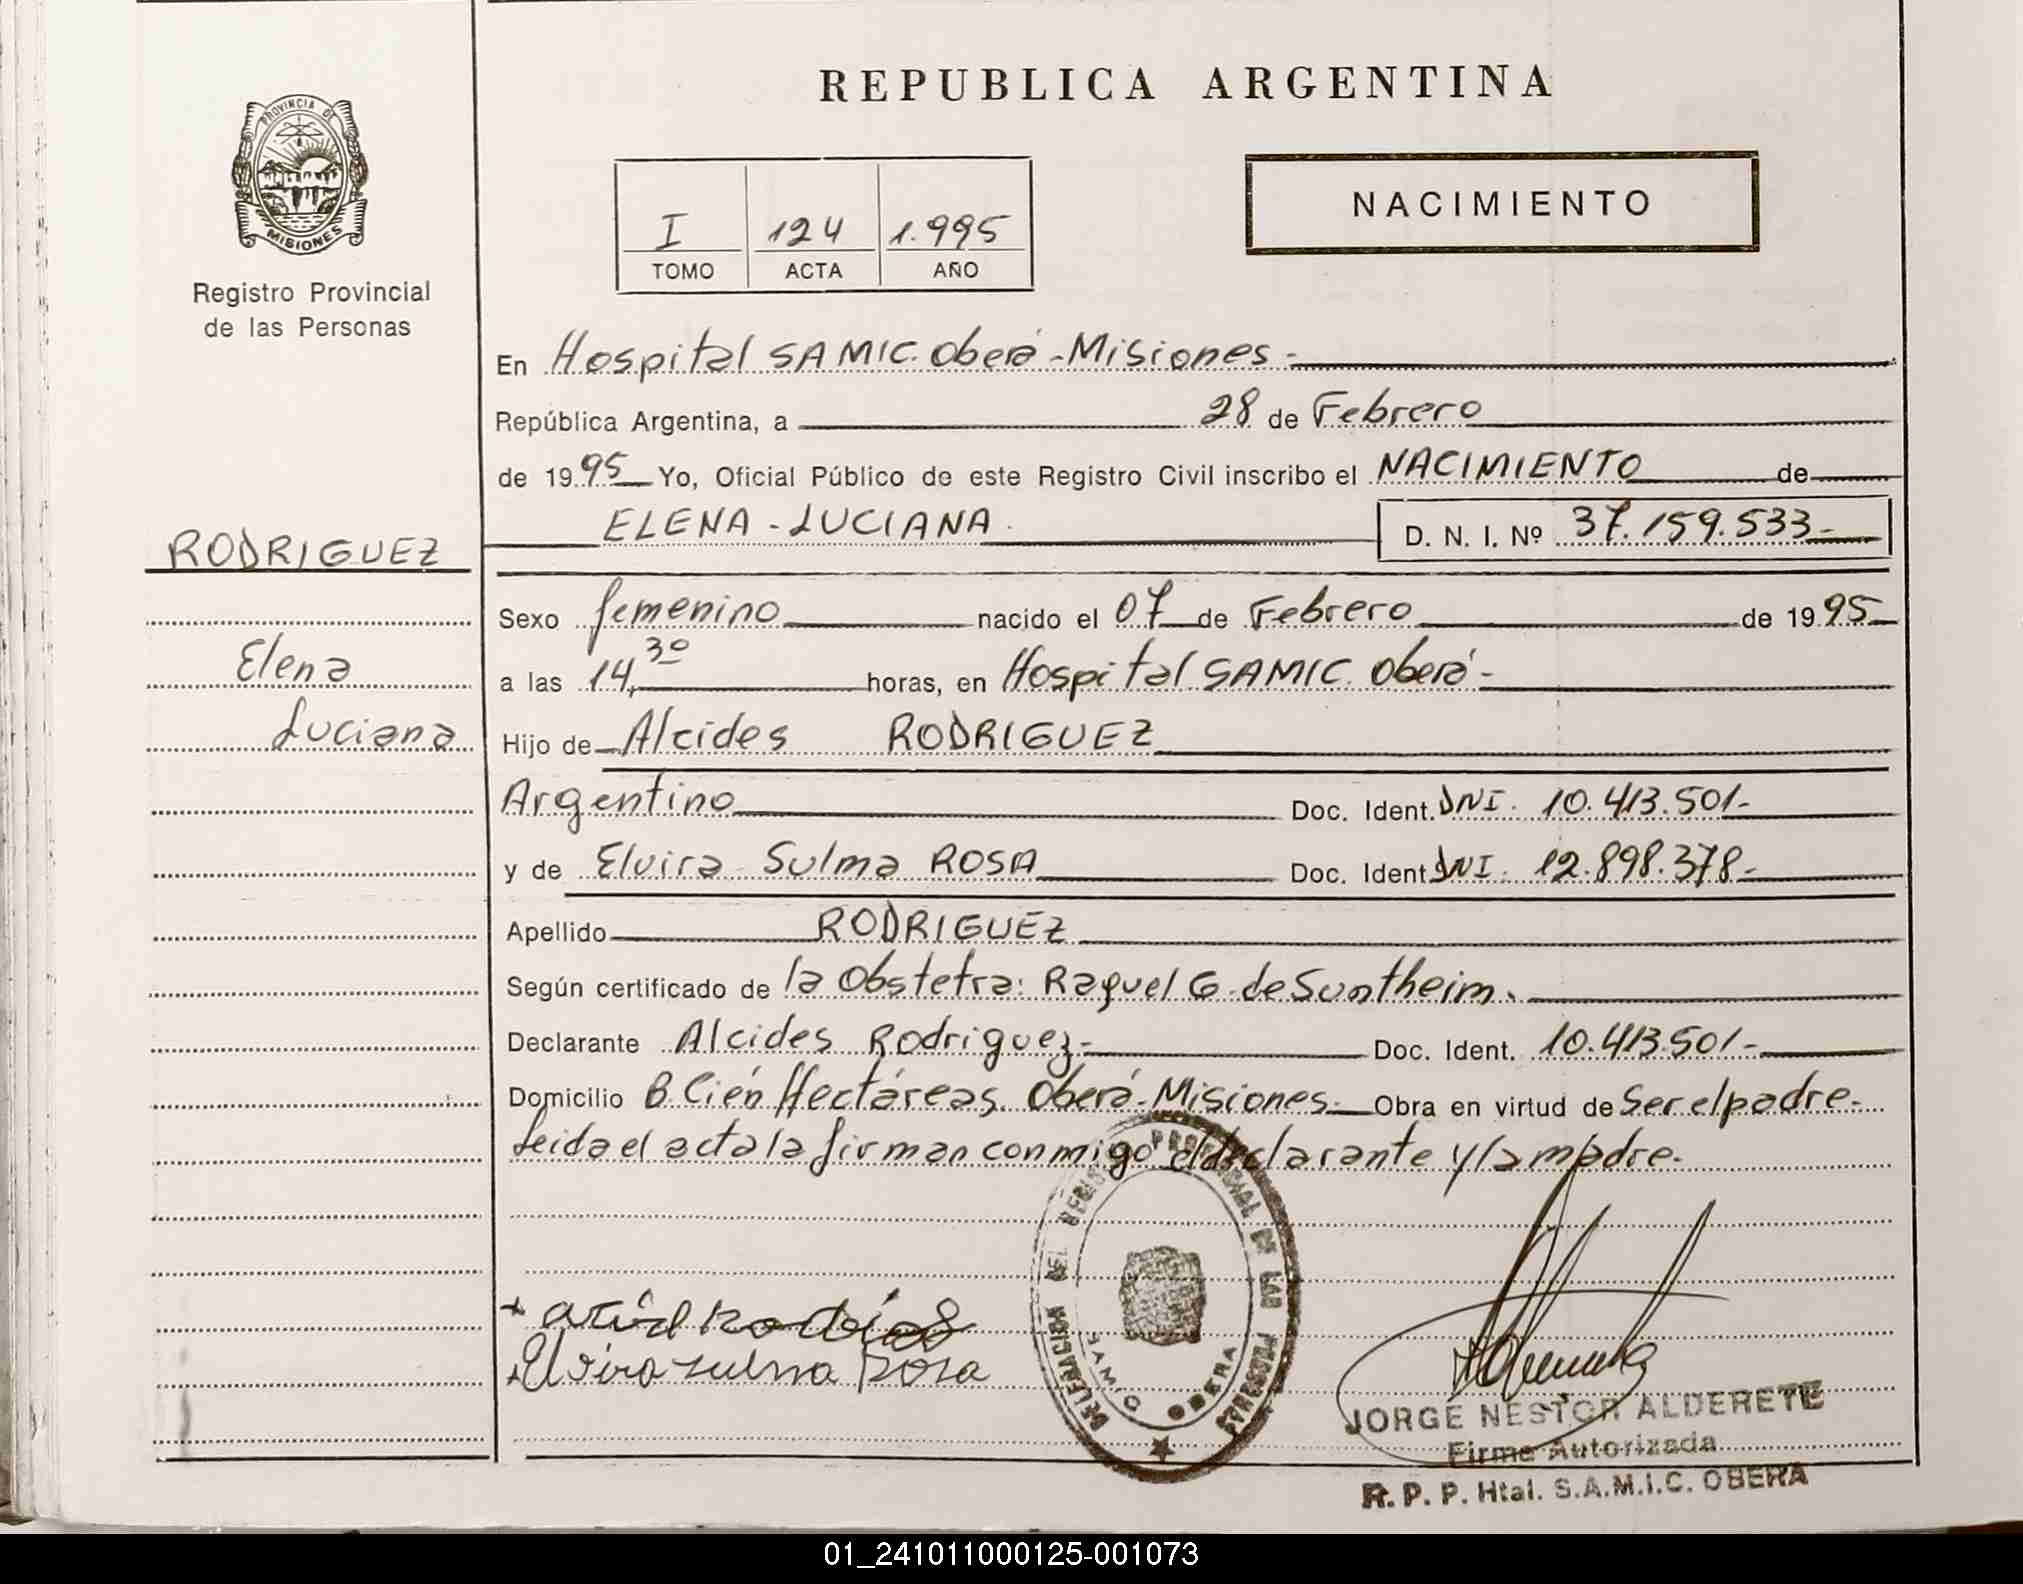 REPUBLICA ARGENTINA
PROVINCIA DE
MISIONES
Registro Provincial
de las Personas
I 124 1.995
TOMO ACTA AÑO
NACIMIENTO
En Hospital SAMIC. Oberá - Misiones -
República Argentina, a 28 de Febrero
de 1995 Yo, Oficial Público de este Registro Civil inscribo el NACIMIENTO de
ELENA - LUCIANA D. N. I. Nº 37.159.533-
RODRIGUEZ
Elena
Luciana
Sexo femenino nacido el 07 de Febrero de 1995
a las 14,30 horas, en Hospital SAMIC. Oberá -
Hijo de Alcides RODRIGUEZ
Argentino Doc. Ident. DNI. 10.413.501-
y de Elvira Sulma ROSA Doc. Ident. DNI. 12.898.378-
Apellido RODRIGUEZ
Según certificado de la Obstetra: Raquel G. de Suntheim.
Declarante Alcides Rodriguez - Doc. Ident. 10.413.501-
Domicilio B Cién Hectáreas. Oberá - Misiones - Obra en virtud de Ser el padre -
Leida el acta la firman conmigo el declarante y la madre.
Elvira zulma Rosa
DELEGACION DEL REGISTRO PROVINCIAL DE LAS PERSONAS
OBERA
JORGE NESTOR ALDERETE
Firma Autorizada
R. P. P. Htal. S.A.M.I.C. OBERA
01_241011000125-001073